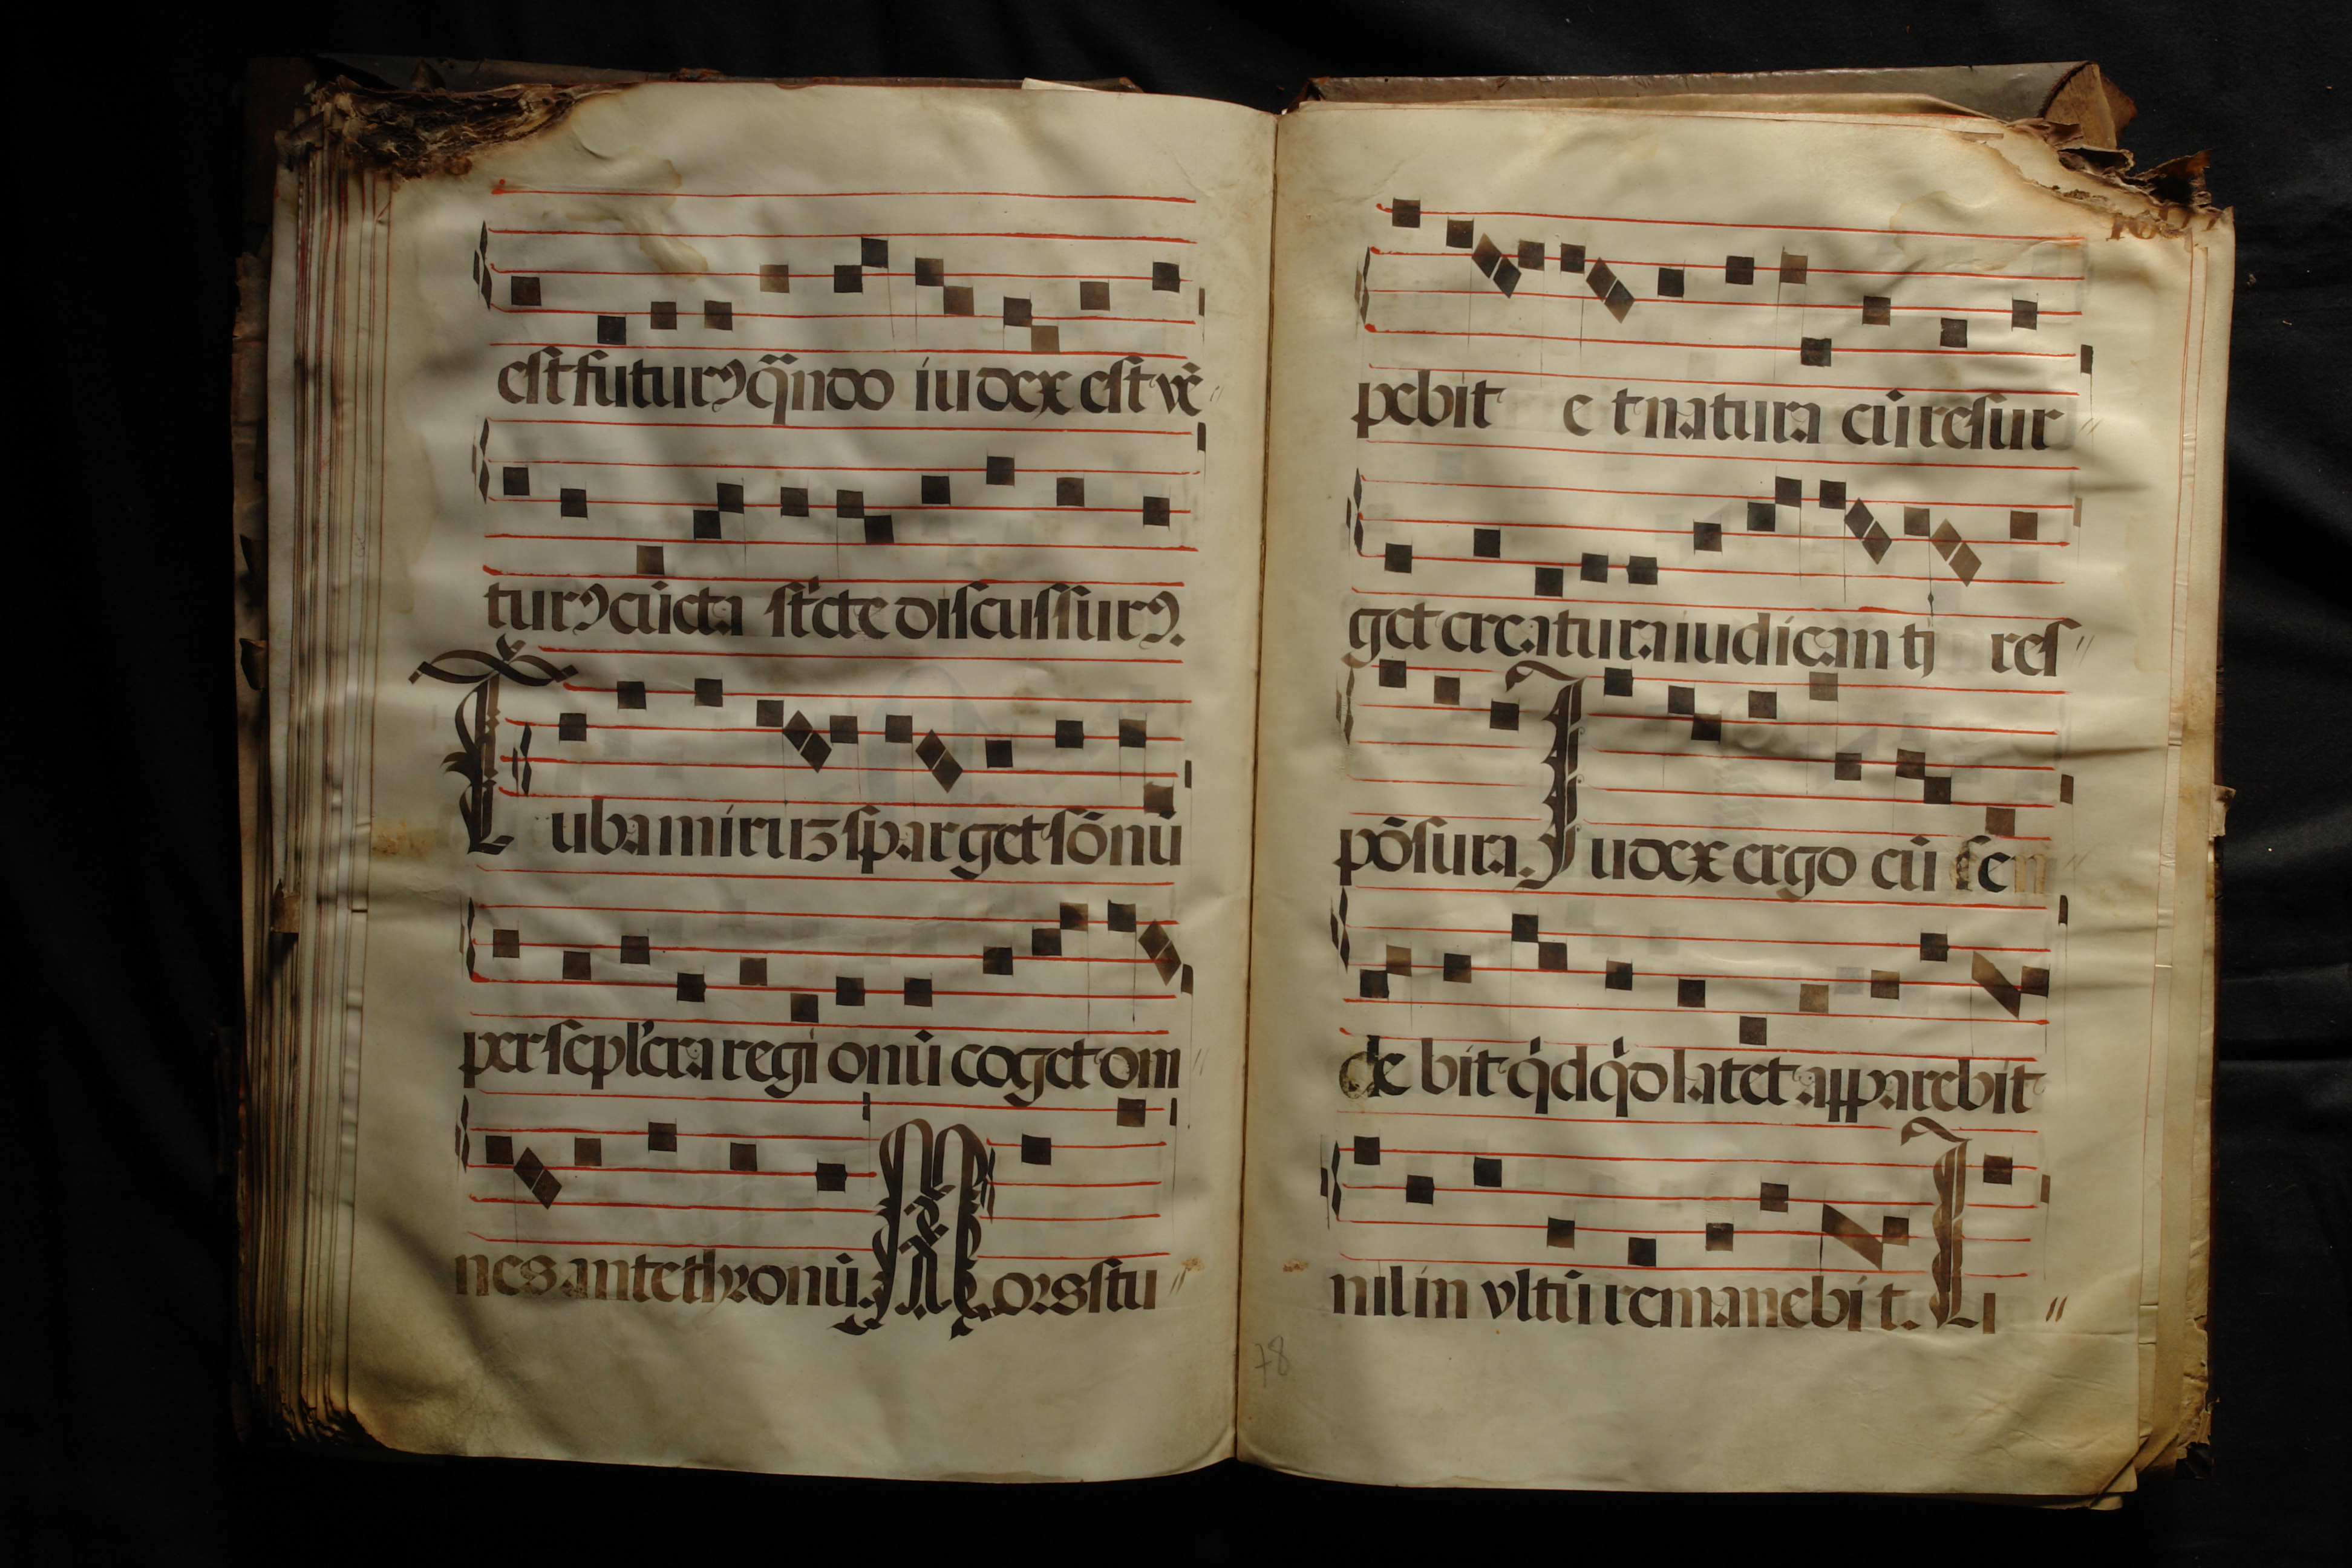 est futurꝰ qñdo iudex est vẽ〃
turꝰ cũcta st̕cte discussurꝰ.
Tuba miruz sparget sõnũ
per sepl̕cra regionũ coget om〃
nes ante thronũ. Mors stu〃
pebit et natura cũ resur〃
get creatura iudicantj res〃
põsura. Judex ergo cũ sen〃
debit qͥdqͥd latet apparebit
nil in vltũ remanebit. Li〃
78